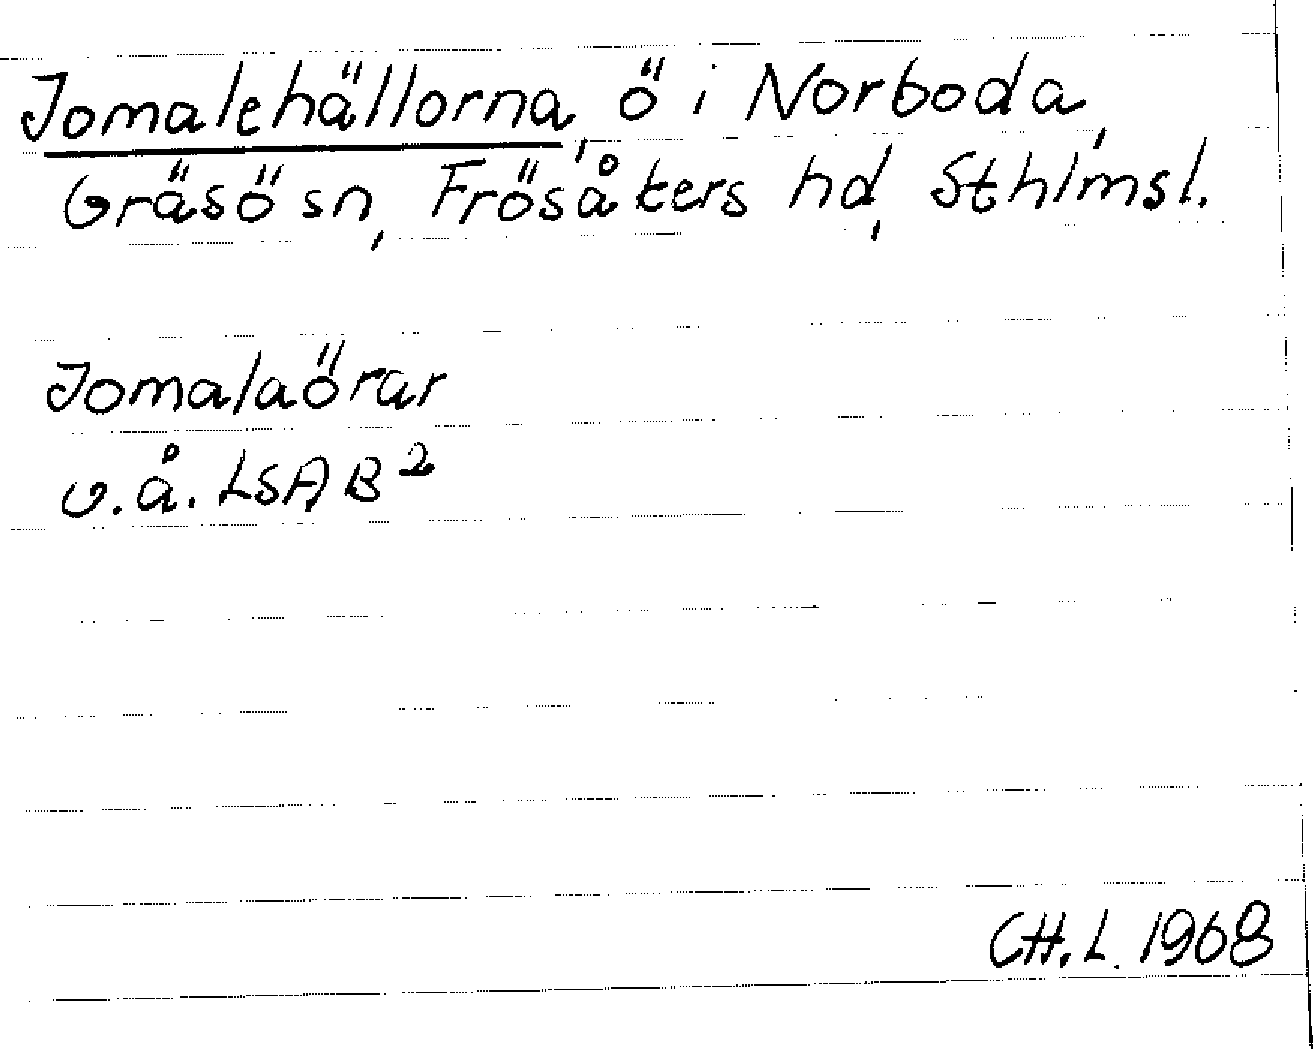 Jomalehällorna, ö i Norboda,
Gräsö sn, Frösåkers hd, Sthlmsl.
Jomalaörar
u.å. LSA B²
CH.L. 1968